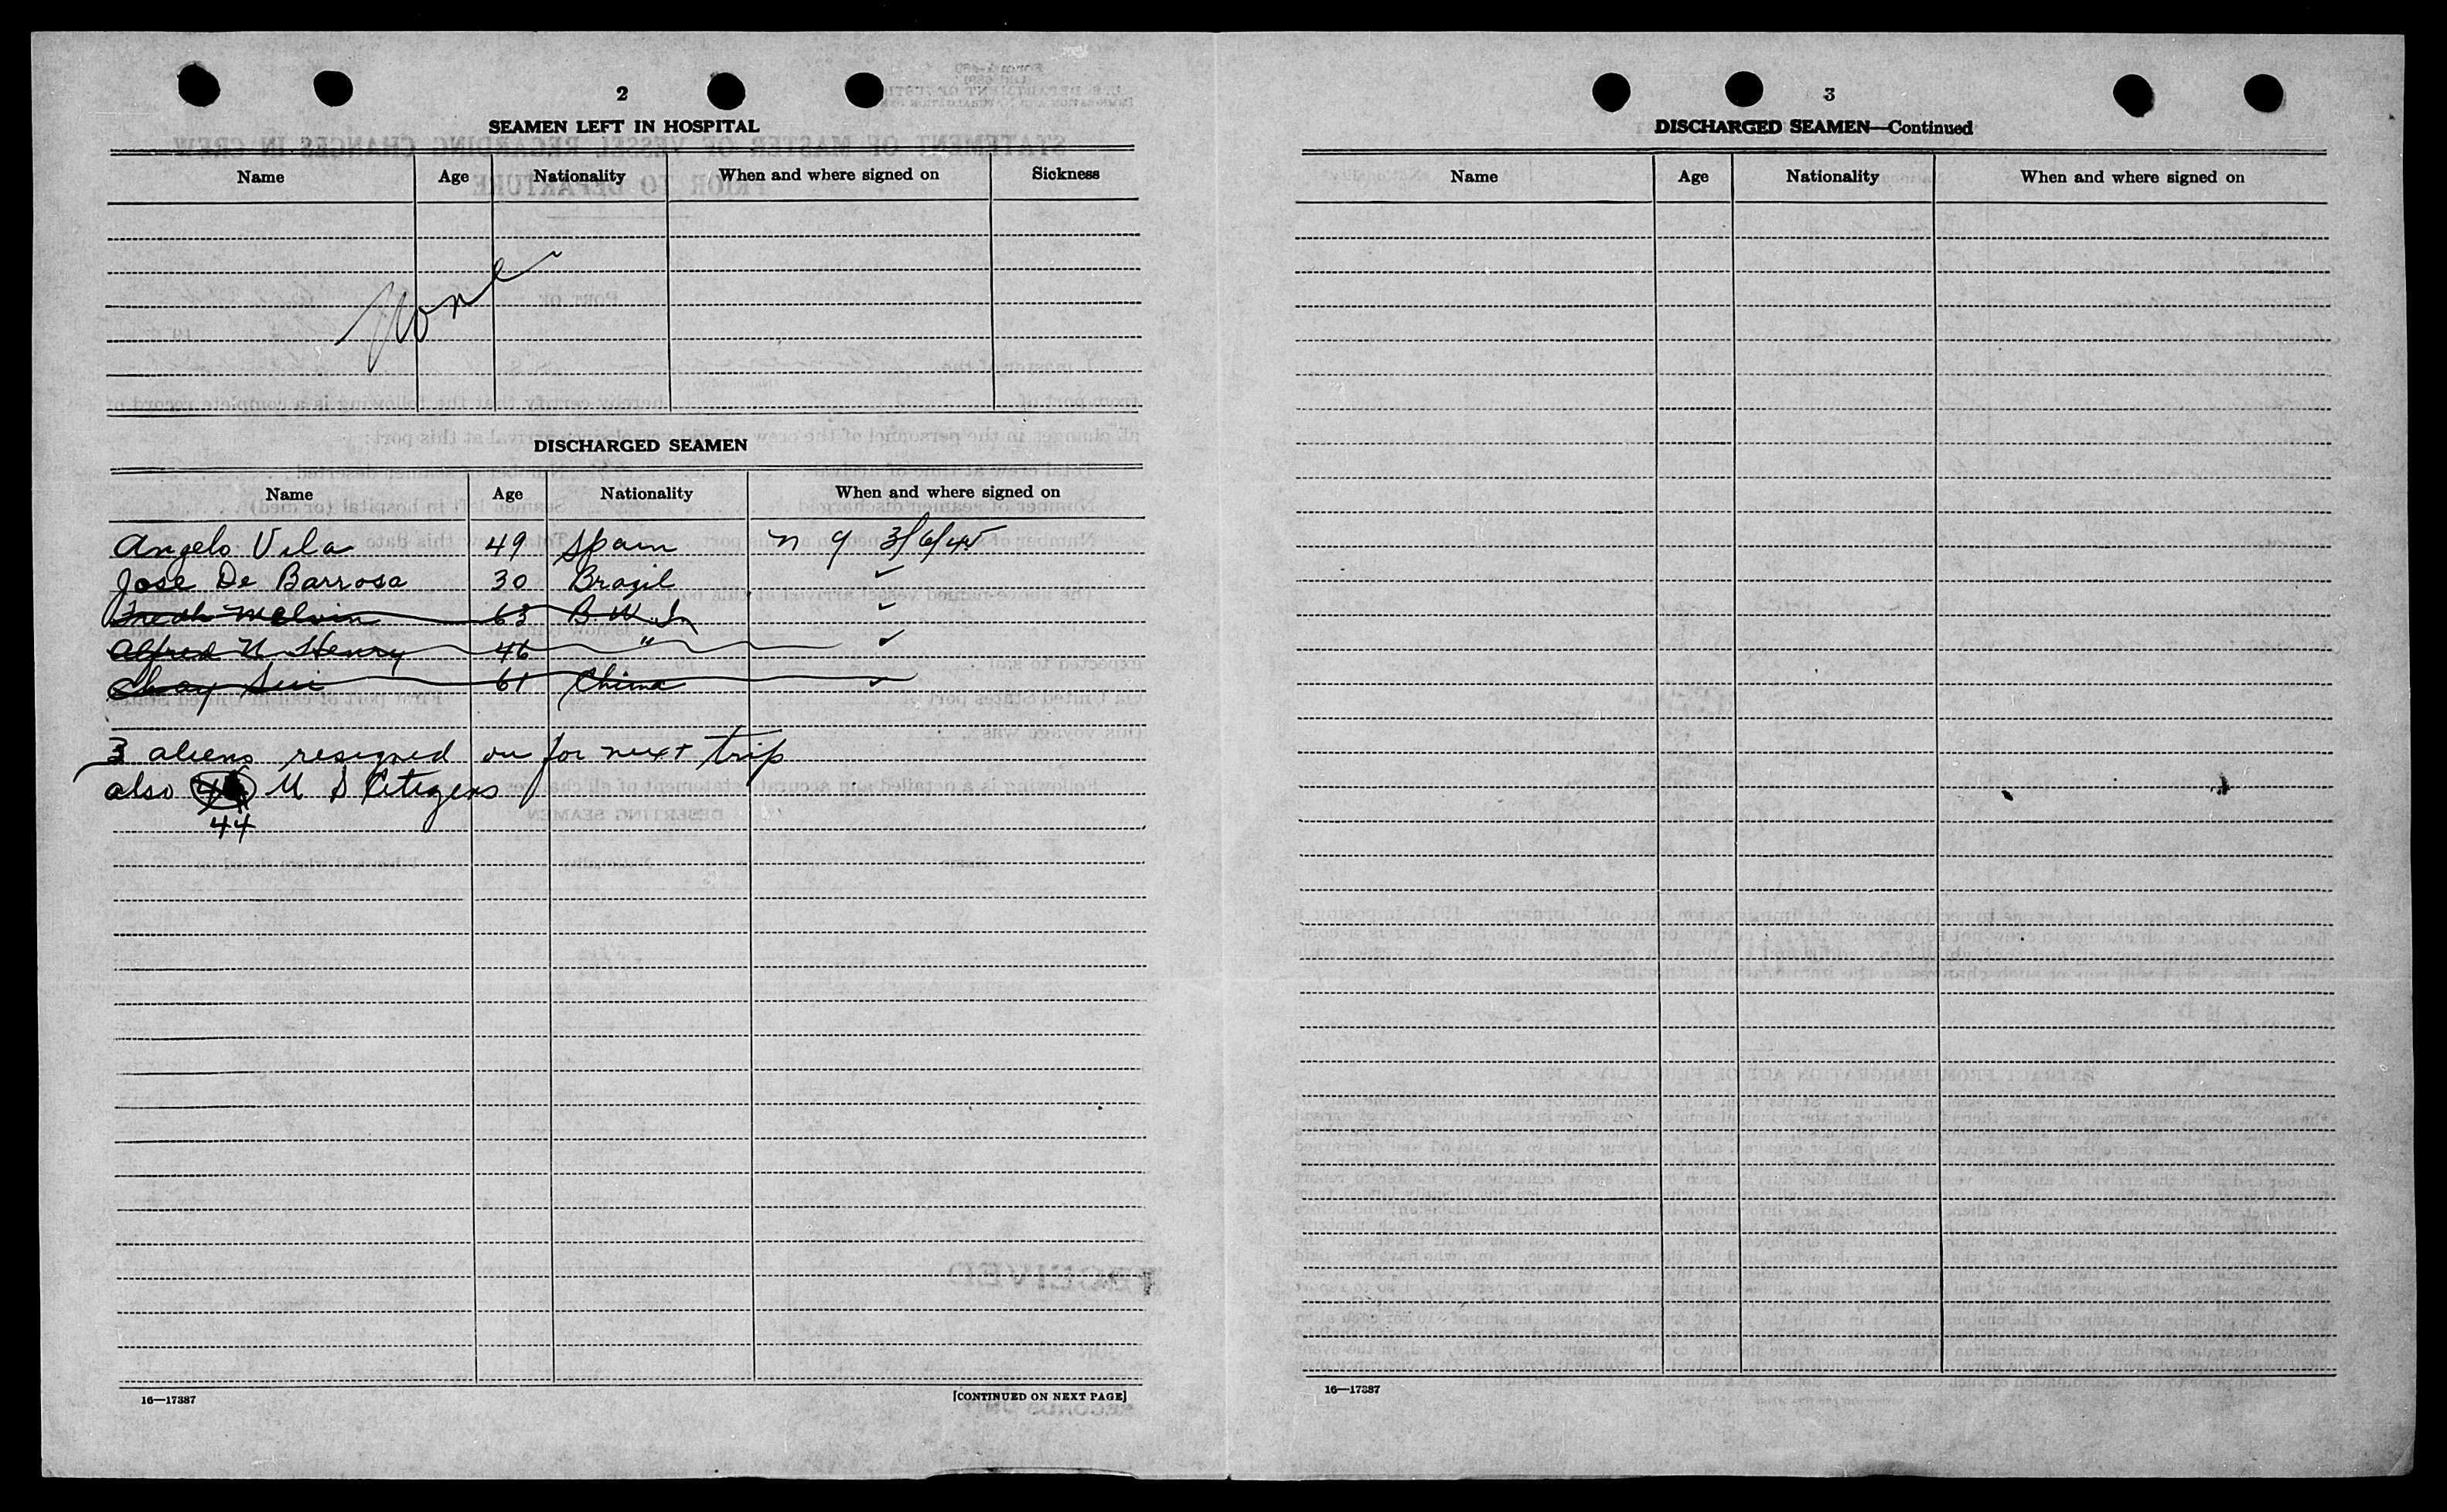 2
SEAMEN LEFT IN HOSPITAL
Name Age Nationality When and where signed on Sickness
None
DISCHARGED SEAMEN
Name Age Nationality When and where signed on
Angelo Vila 49 Spain n y 3/6/45
Jose De Barrosa 30 Brazil ✓
Melvin 63 B.W.I. ✓
Alfred N Henry 46 " ✓
61 China ✓
3 aliens resigned on for next trip
also U S Citizens
44
16—17387
[CONTINUED ON NEXT PAGE]
3
DISCHARGED SEAMEN—Continued
Name Age Nationality When and where signed on
16—17387